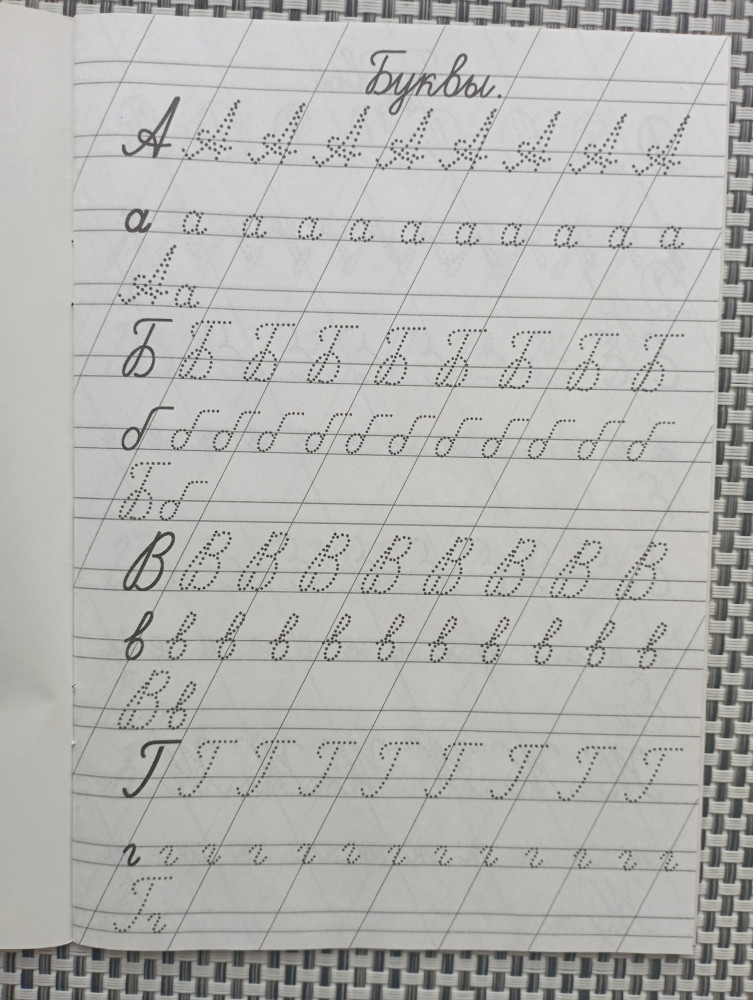 Буквы.
А А А А А А А А А
а а а а а а а а а а а
Аа
Б Б Б Б Б Б Б Б Б
б б б б б б б б б б б б
Бб
В В В В В В В В В
в в в в в в в в в в в
Вв
Г Г Г Г Г Г Г Г Г
г г г г г г г г г г г г г
Гг